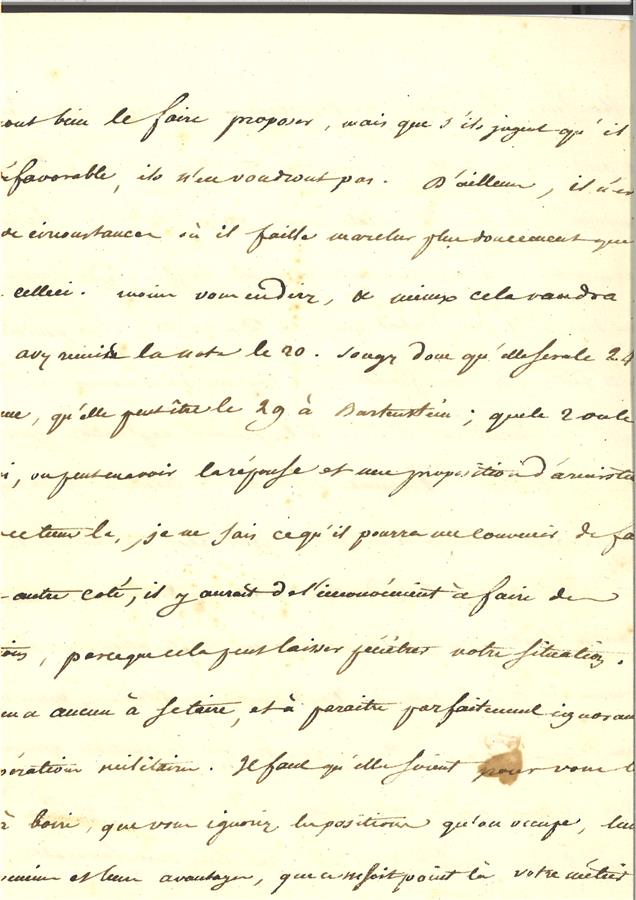 ont bien le faire proposer, mais que s'ils jugent qu'il
éfavorable, ils n'en voudront pas. D'ailleurs, il n'es
de circonstances où il faille marcher plus doucement que
celleci. moins vous en direz, & mieux cela vaudra
avez remis la note le 20. songez donc qu'elle sera le 24
me, qu'elle peut être le 29 à Bartenstein; que le 2 ou le
i, on peut en avoir la réponse et une proposition d'armistic
ce tems la, je ne sais ce qu'il pourra me convenir de fa
autre coté, il y aurait de l'inconvénient à faire de
tions, parceque cela peut laisser pénétrer votre situation.
en a aucun à se taire, et à paraitre parfaitement ignoran
pérations militaires. Il faut qu'elles soient pour vous l
à boire, que vous ignoriez les positions qu'on occupe, leu
et leurs avantages, que ce n'est point là votre métier